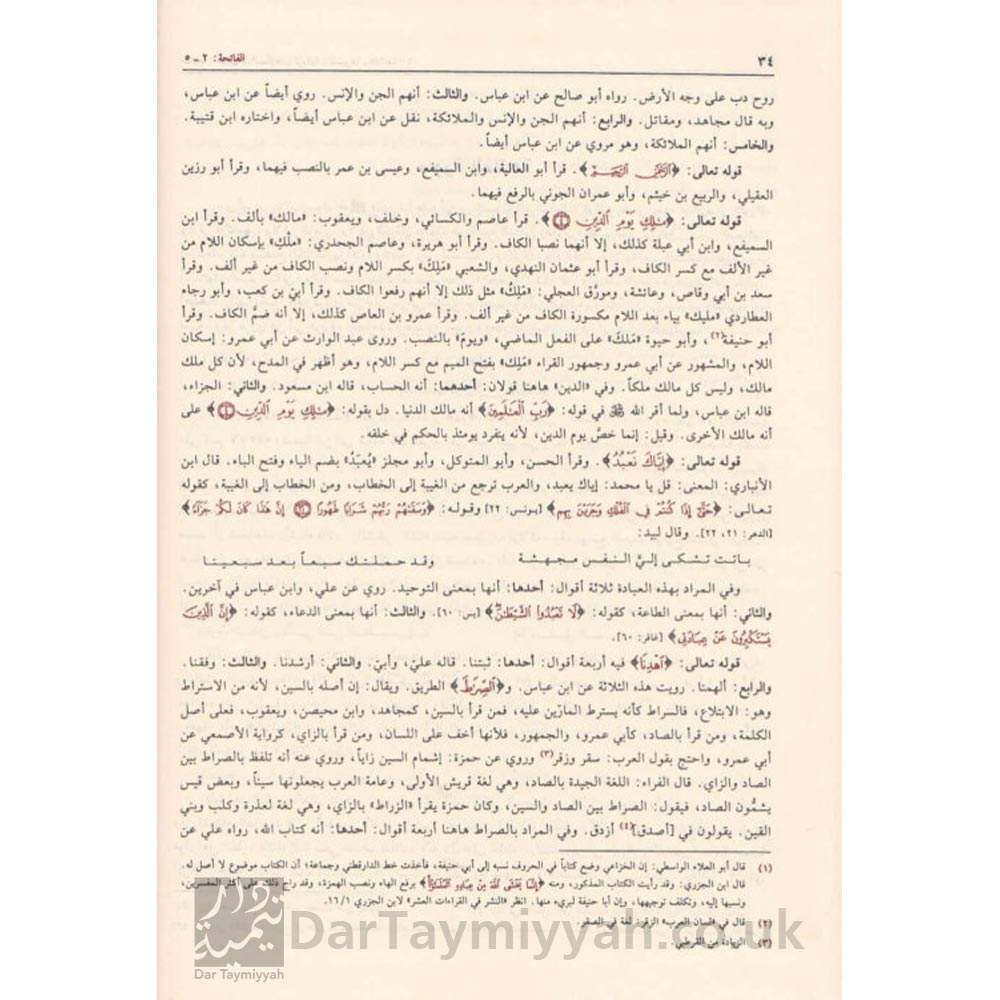 ٣٤
الفاتحة: ٢ ـ ٥
روح دب على وجه الأرض. رواه أبو صالح عن ابن عباس. والثالث: أنهم الجن والإنس. روي أيضاً عن ابن عباس،
وبه قال مجاهد، ومقاتل. والرابع: أنهم الجن والإنس والملائكة، نقل عن ابن عباس أيضاً، واختاره ابن قتيبة.
والخامس: أنهم الملائكة، وهو مروي عن ابن عباس أيضاً.
قوله تعالى: ﴿ٱلرَّحْمَٰنِ ٱلرَّحِيمِ﴾. قرأ أبو العالية، وابن السميفع، وعيسى بن عمر بالنصب فيهما، وقرأ أبو رزين
العقيلي، والربيع بن خيثم، وأبو عمران الجوني بالرفع فيهما.
قوله تعالى: ﴿مَٰلِكِ يَوْمِ ٱلدِّينِ ٤﴾. قرأ عاصم والكسائي، وخلف، ويعقوب: «مالك» بألف. وقرأ ابن
السميفع، وابن أبي عبلة كذلك، إلا أنهما نصبا الكاف. وقرأ أبو هريرة، وعاصم الجحدري: «مَلْكِ» بإسكان اللام من
غير الألف مع كسر الكاف، وقرأ أبو عثمان النهدي، والشعبي «مَلِكَ» بكسر اللام ونصب الكاف من غير ألف. وقرأ
سعد بن أبي وقاص، وعائشة، ومورَّق العجلي: «مَلِكُ» مثل ذلك إلا أنهم رفعوا الكاف. وقرأ أبيّ بن كعب، وأبو رجاء
العطاردي «مليك» بياء بعد اللام مكسورة الكاف من غير ألف. وقرأ عمرو بن العاص كذلك، إلا أنه ضمَّ الكاف. وقرأ
أبو حنيفة(٢)، وأبو حيوة «مَلَكَ» على الفعل الماضي، «ويومَ» بالنصب. وروى عبد الوارث عن أبي عمرو: إسكان
اللام، والمشهور عن أبي عمرو وجمهور القراء «مَلِك» بفتح الميم مع كسر اللام، وهو أظهر في المدح، لأن كل ملك
مالك، وليس كل مالك ملكاً. وفي «الدين» هاهنا قولان: أحدهما: أنه الحساب، قاله ابن مسعود. والثاني: الجزاء،
قاله ابن عباس، ولما أقر الله ﷻ في قوله: ﴿رَبِّ ٱلْعَٰلَمِينَ﴾ أنه مالك الدنيا. دل بقوله: ﴿مَٰلِكِ يَوْمِ ٱلدِّينِ ٤﴾ على
أنه مالك الأخرى. وقيل: إنما خصَّ يوم الدين، لأنه ينفرد يومئذ بالحكم في خلقه.
قوله تعالى: ﴿إِيَّاكَ نَعْبُدُ﴾. وقرأ الحسن، وأبو المتوكل، وأبو مجلز «يُعبَدُ» بضم الياء وفتح الباء. قال ابن
الأنباري: المعنى: قل يا محمد: إياك يعبد، والعرب ترجع من الغيبة إلى الخطاب، ومن الخطاب إلى الغيبة، كقوله
تعالى: ﴿حَتَّىٰٓ إِذَا كُنتُمْ فِى ٱلْفُلْكِ وَجَرَيْنَ بِهِم﴾ [يونس: ٢٢] وقوله: ﴿وَسَقَىٰهُمْ رَبُّهُمْ شَرَابًا طَهُورًا ٢١ إِنَّ هَٰذَا كَانَ لَكُمْ جَزَآءً﴾
[الدهر: ٢١، ٢٢]. وقال لبيد:
باتت تشكى إليَّ النفس مجهشة وقد حملتك سبعاً بعد سبعينا
وفي المراد بهذه العبادة ثلاثة أقوال: أحدها: أنها بمعنى التوحيد. روي عن علي، وابن عباس في آخرين.
والثاني: أنها بمعنى الطاعة، كقوله: ﴿لَا تَعْبُدُوا۟ ٱلشَّيْطَٰنَ﴾ [يس: ٦٠]. والثالث: أنها بمعنى الدعاء، كقوله: ﴿إِنَّ ٱلَّذِينَ
يَسْتَكْبِرُونَ عَنْ عِبَادَتِى﴾ [غافر: ٦٠].
قوله تعالى: ﴿ٱهْدِنَا﴾ فيه أربعة أقوال: أحدها: ثبتنا. قاله عليّ، وأبيّ. والثاني: أرشدنا. والثالث: وفقنا.
والرابع: ألهمنا. رويت هذه الثلاثة عن ابن عباس. و﴿ٱلصِّرَٰطَ﴾ الطريق. ويقال: إن أصله بالسين، لأنه من الاستراط
وهو: الابتلاع، فالسراط كأنه يسترط المارّين عليه، فمن قرأ بالسين، كمجاهد، وابن محيصن، ويعقوب، فعلى أصل
الكلمة، ومن قرأ بالصاد، كأبي عمرو، والجمهور، فلأنها أخف على اللسان، ومن قرأ بالزاي، كرواية الأصمعي عن
أبي عمرو، واحتج بقول العرب: سقر وزقر(٣) وروي عن حمزة: إشمام السين زاياً، وروي عنه أنه تلفظ بالصراط بين
الصاد والزاي. قال الفراء: اللغة الجيدة بالصاد، وهي لغة قريش الأولى، وعامة العرب يجعلونها سيناً، وبعض قيس
يشمُّون الصاد، فيقول: الصراط بين الصاد والسين، وكان حمزة يقرأ «الزراط» بالزاي، وهي لغة لعذرة وكلب وبني
القين. يقولون في [أصدق](٤) أزدق. وفي المراد بالصراط هاهنا أربعة أقوال: أحدها: أنه كتاب الله، رواه علي عن
(١) قال أبو العلاء الواسطي: إن الخزاعي وضع كتاباً في الحروف نسبه إلى أبي حنيفة، فأخذت خط الدارقطني وجماعة؛ أن الكتاب موضوع لا أصل له.
قال ابن الجزري: وقد رأيت الكتاب المذكور، ومنه ﴿إِنَّمَا يَخْشَى ٱللَّهَ مِنْ عِبَادِهِ ٱلْعُلَمَٰٓؤُا۟﴾ برفع الهاء ونصب الهمزة، وقد راج ذلك على أكثر المفسرين،
ونسبها إليه، وتكلف توجيهها، وإن أبا حنيفة لبريء منها. انظر «النشر في القراءات العشر» لابن الجزري ١٦/١.
(٢) قال في «لسان العرب» الزقر: لغة في الصقر.
(٣) الزيادة من القرطبي.
دار تيمية
Dar Taymiyyah
DarTaymiyyah.co.uk